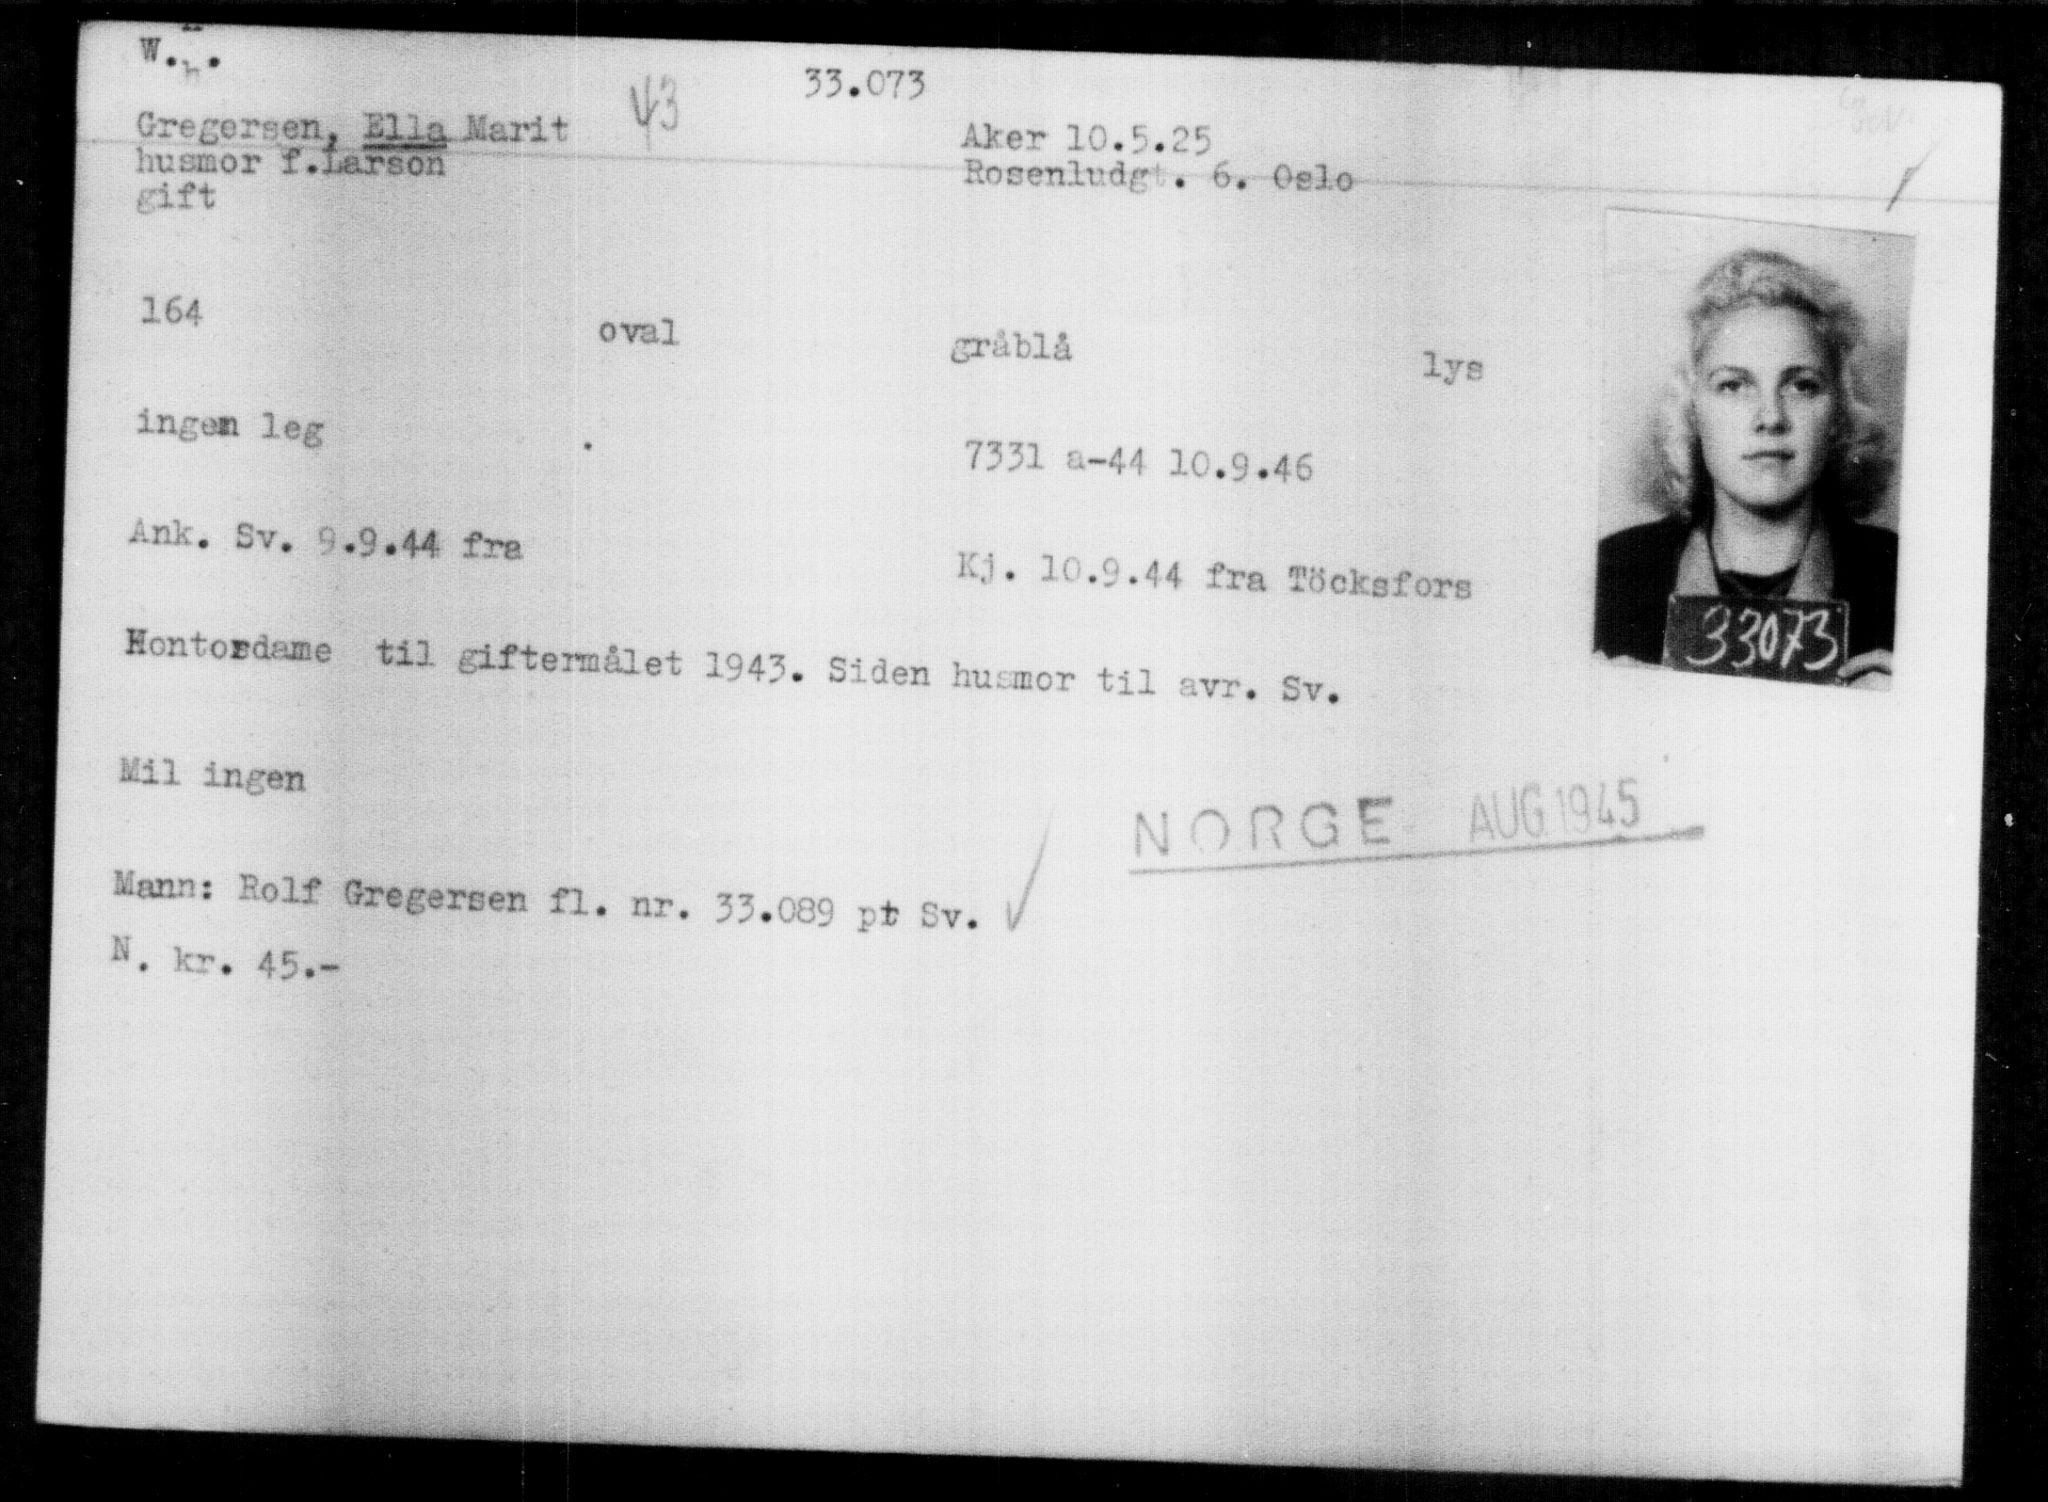 W. .
33.073
43
Gregersen, Ella Marit
Aker 10.5.25
husmor f.Larson
Rosenludgt. 6. Oslo
gift
164
oval
gråblå
lys
ingen leg
7331 a-44 10.9.46
Ank. Sv. 9.9.44 fra
Kj. 10.9.44 fra Töcksfors
33073
Hontordame til giftermålet 1943. Siden husmor til avr. Sv.
Mil ingen
NORGE AUG 1945
Mann: Rolf Gregersen fl. nr. 33.089 pt Sv.
N. kr. 45.-